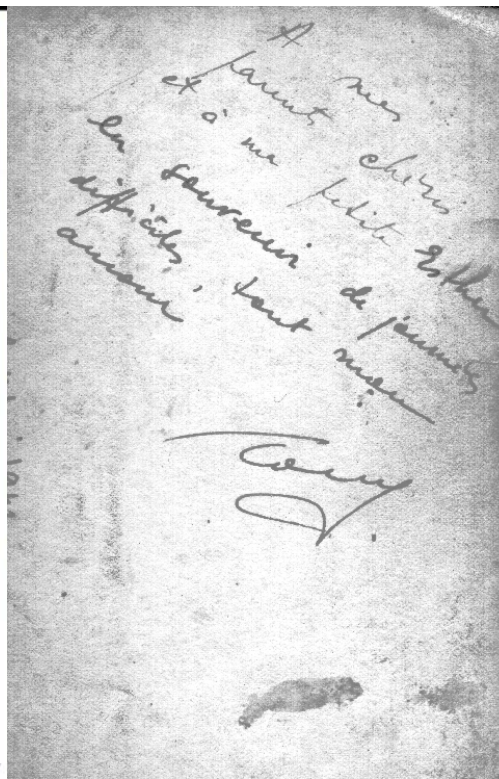 A mes
parents chéris
et à ma petite Esther
en souvenir de journées
difficiles, tout mon
amour